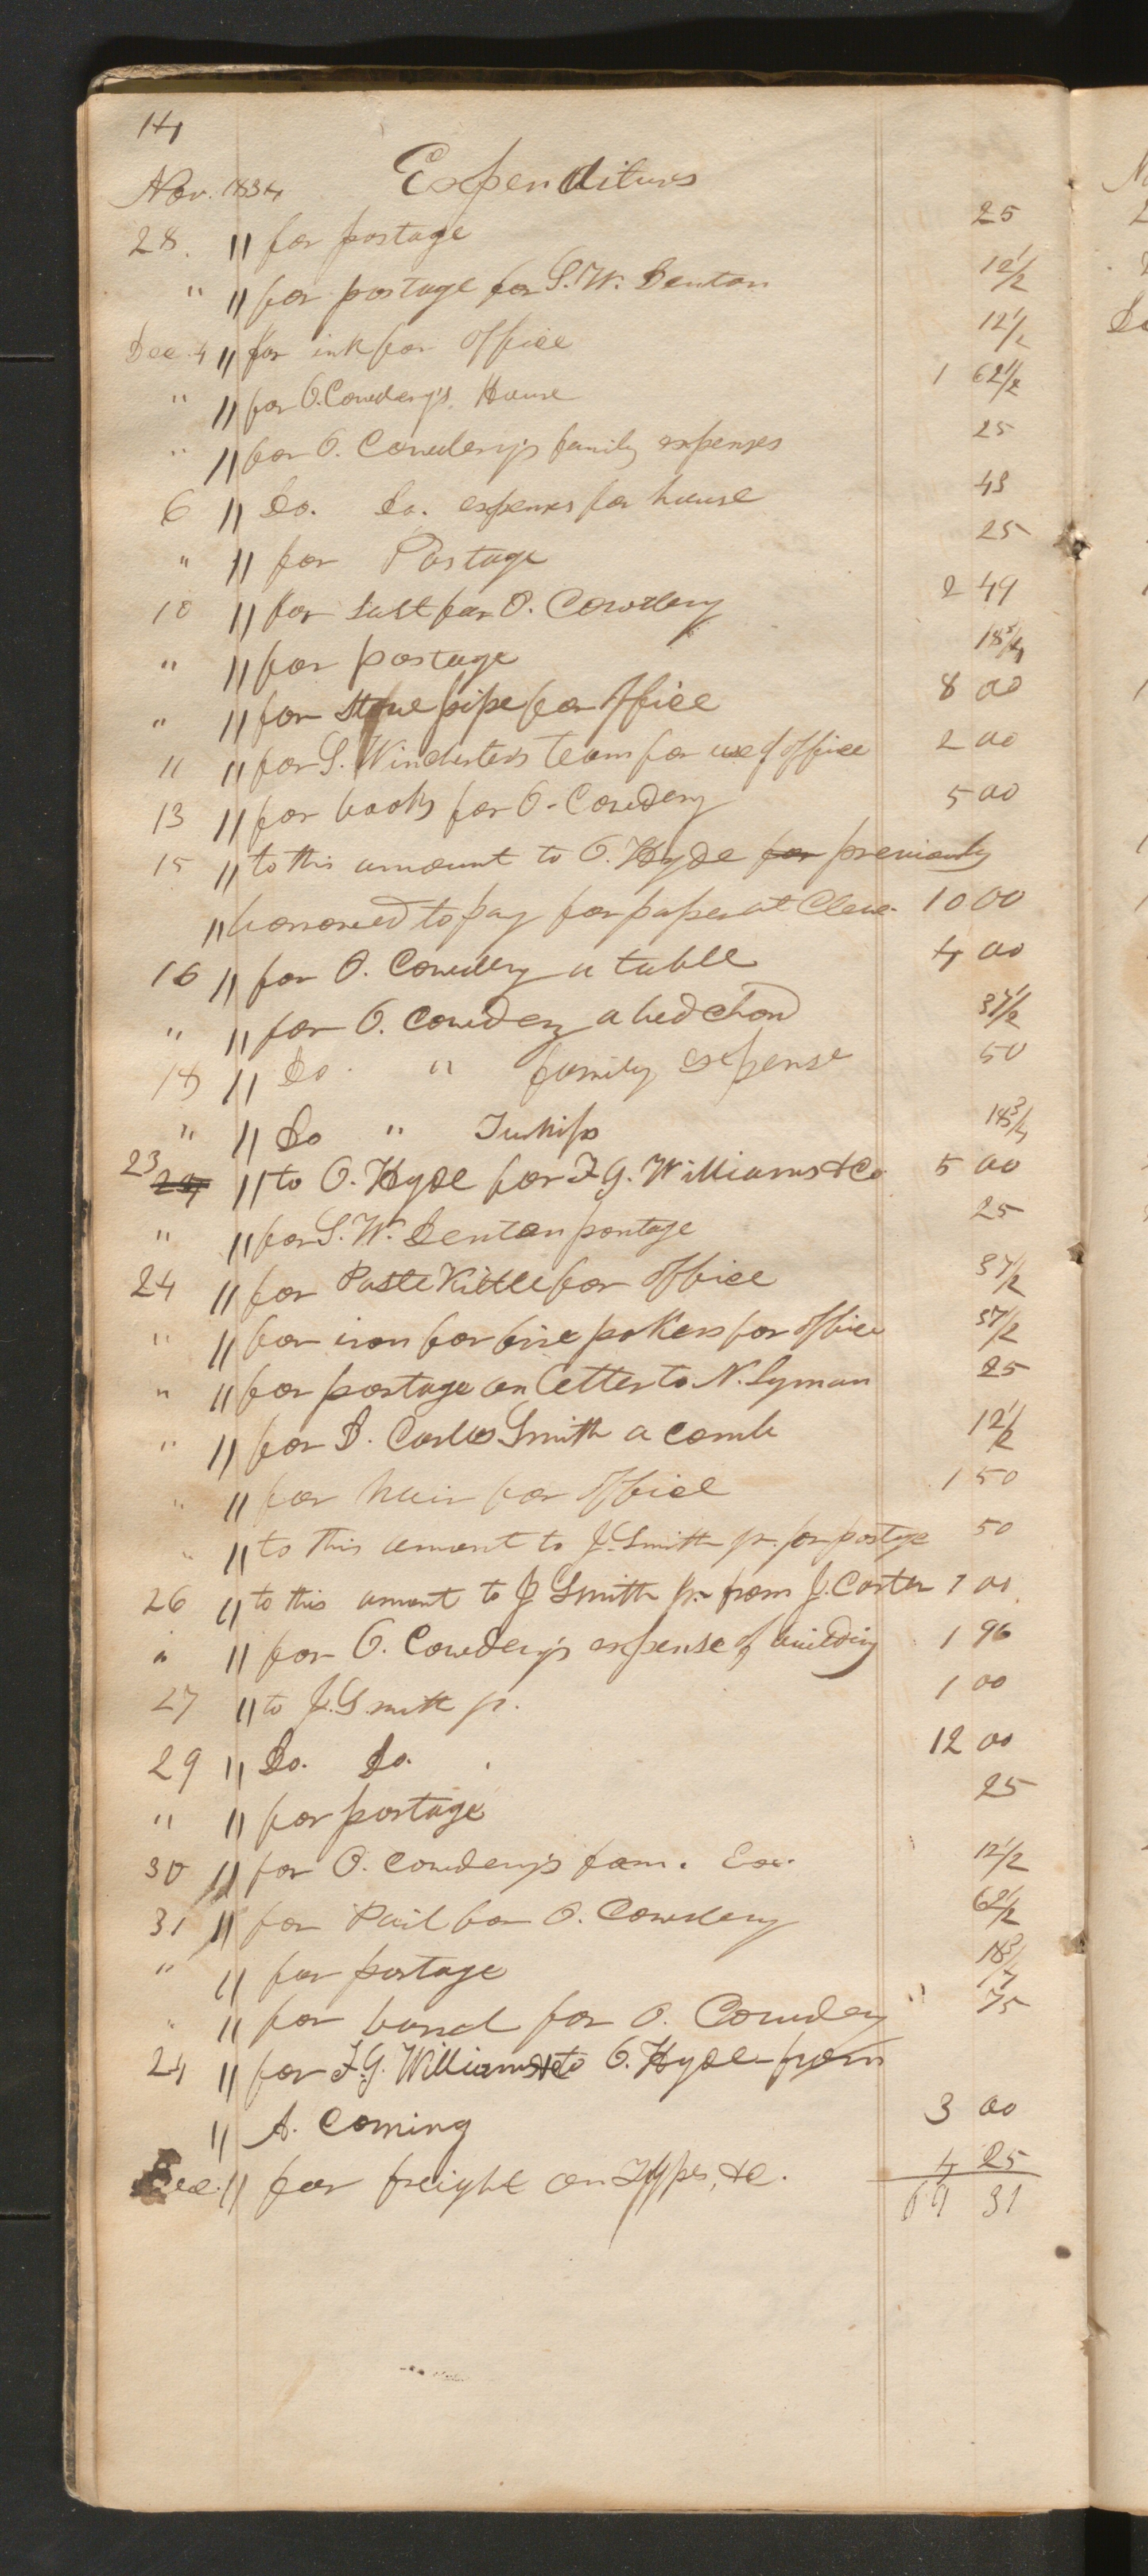 14
Nov. 1834 Expenditures
28. " for postage 25
" " for postage for S. W. Denton 12 1/2
Dec. 4 " for ink for office 12 1/2
" " for O. Cowdery's House 1 62 1/2
" " for O. Cowdery's family expenses 25
6 " Do. Do. expenses for house 43
" " for Postage 25
10 " for Salt for O. Cowdery 2 49
" " for postage 18 3/4
" " for stove pipe for office 8 00
11 " for S. Winchester's team for use of office 2 00
13 " for books for O. Cowdery 5 00
15 " to this amount to O. Hyde for previously
" borrowed to pay for paper at Cleve. 10 00
16 " for O. Cowdery a table 4 00
" " for O. Cowdery a bed chord 37 1/2
18 " Do. " family expense 50
" " Do " 18 3/4
23 24 " to O. Hyde for F. G. Williams & Co 5 00
" " for S. W. Denton postage 25
24 " for Paste Kittle for office 37 1/2
" " for iron for fire pokers for office 37 1/2
" " for postage on letter to N. Lyman 25
" " for D. Carlos Smith a comb 12 1/2
" " for hair for office 1 50
" " to this amount to J. Smith jr. for postage 50
26 " to this amount to J Smith jr. from J. Carter 7 00
" " for O. Cowdery's expense of building 1 96
27 " to J. Smith jr. 1 00
29 " Do. Do. 12 00
" " for postage 25
30 " for O. Cowdery's fam. Ex. 12 1/2
31 " for Pail for O. Cowdery 62 1/2
" " for postage 18 3/4
" " for for O. Cowdery " 75
24 " for F. G. Williams & Co to O. Hyde from
" A. Coming 3 00
Dec. " for freight on Types, &c. 4 25
69 31